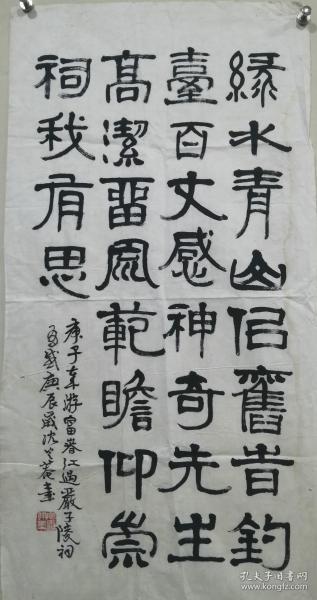 緑水青山侣舊昔釣
臺百丈感神奇先生
高潔留風範瞻仰崇
祠我有思
庚子春游富春江過嚴子陵祠
有感庚辰歲沈
書
孔夫子旧书网